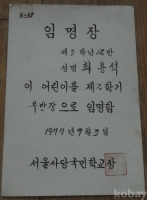 임명장
제3학년12반
성명 최용석
이 어린이를 제2학기
부반장으로 임명함
1977년 9월 5일
서울사당국민학교장
kobay